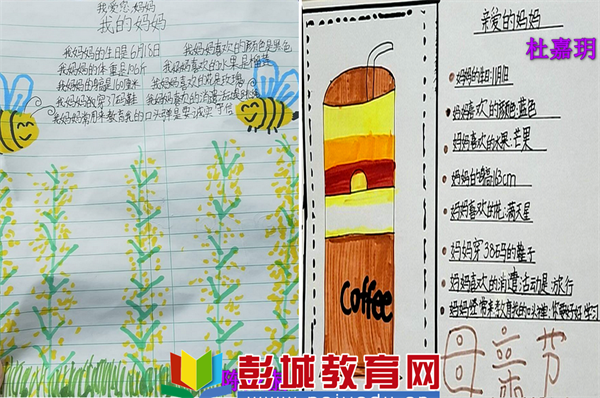 我爱您,妈妈
我的妈妈
我妈妈的生日是6月18日
我妈妈喜欢的颜色是黑色
我妈妈的体重是106斤
我妈妈喜欢的水果是榴莲
我妈妈的身高是160厘米
我妈妈喜欢的花是玫瑰
我妈妈我穿37码鞋
我妈妈喜欢的消遣活动是
我妈妈常用来教育我的口头禅是要诚实 守信
亲爱的妈妈
杜嘉玥
妈妈的生日:11月1日
妈妈喜欢的颜色:蓝色
妈妈喜欢的水果:芒果
妈妈的身高:163cm
妈妈喜欢的花:满天星
妈妈穿38码的鞋子
妈妈喜欢的消遣活动是:旅行
妈妈经常来教育我的口头禅:你要好好学习
Coffee
母亲节
彭城教育网